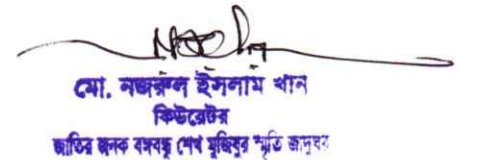 মো. নজরুল ইসলাম খান
কিউরেটর
জাতির জনক বঙ্গবন্ধু শেখ মুজিবুর স্মৃতি জাদুঘর